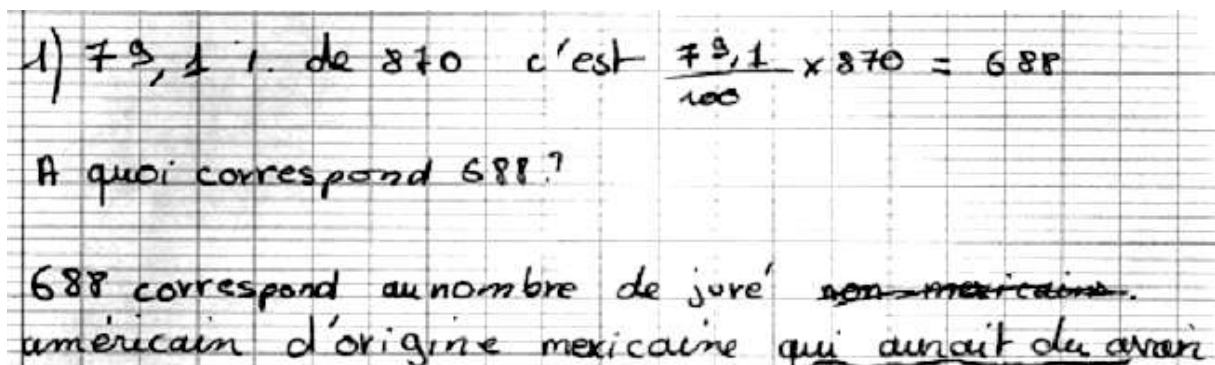 1) 79,1 % de 870 c'est 79,1/100 x 870 = 688
A quoi correspond 688?
688 correspond au nombre de juré non-mexicains.
américain d'origine mexicaine qui aurait du avoir